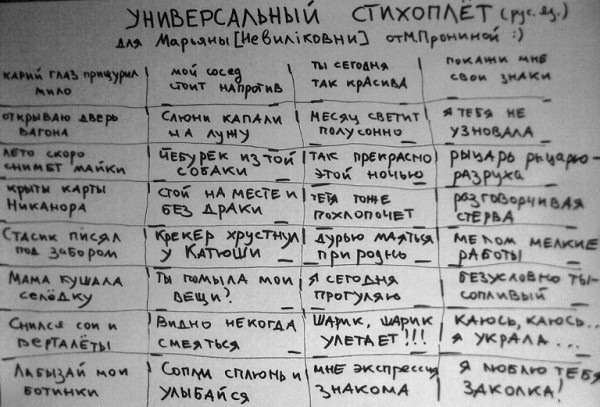 УНИВЕРСАЛЬНЫЙ СТИХОПЛЁТ (рус. яз.)
для Марьяны [Невиліковни] от М. Прониной :)
КАРИЙ ГЛАЗ ПРИЩУРИЛ МИЛО
МОЙ СОСЕД СТОИТ НАПРОТИВ
ТЫ СЕГОДНЯ ТАК КРАСИВА
ПОКАЖИ МНЕ СВОИ ЗНАКИ
ОТКРЫВАЮ ДВЕРЬ ВАГОНА
СЛЮНИ КАПАЛИ НА ЛУЖУ
МЕСЯЦ СВЕТИТ ПОЛУСОННО
Я ТЕБЯ НЕ УЗНОВАЛА
ЛЕТО СКОРО СНИМЕТ МАЙКИ
ЧЕБУРЕК ИЗ ТОЙ СОБАКИ
ТАК ПРЕКРАСНО ЭТОЙ НОЧЬЮ
РЫЦАРЬ РЫЦАРЮ - РАЗРУХА
КРЫТЫ КАРТЫ НИКАНОРА
СТОЙ НА МЕСТЕ И БЕЗ ДРАКИ
ТЕТЯ ТОЖЕ ПОХЛОПОЧЕТ
РАЗГОВОРЧИВАЯ СТЕРВА
СТАСИК ПИСЯЛ ПОД ЗАБОРОМ
КРЕКЕР ХРУСТНУЛ У КАТЮШИ
ДУРЬЮ МАЯТЬСЯ ПРИРОДНО
МЕЛОМ МЕЛКИЕ РАБОТЫ
МАМА КУШАЛА СЕЛЁДКУ
ТЫ ПОМЫЛА МОИ ВЕЩИ?
Я СЕГОДНЯ ПРОГУЛЯЮ
БЕЗУСЛОВНО ТЫ - СОПЛИВЫЙ
СНИЛСЯ СОН И ВЕРТАЛЁТЫ
ВИДНО НЕКОГДА СМЕЯТЬСЯ
ШАРИК, ШАРИК УЛЕТАЕТ!!!
КАЮСЬ, КАЮСЬ... Я УКРАЛА...
ЛАБЫЗАЙ МОИ БОТИНКИ
СОПЛИ СПЛЮНЬ И УЛЫБАЙСЯ
МНЕ ЭКСПРЕССИЯ ЗНАКОМА
Я ЛЮБЛЮ ТЕБЯ ЗАКОЛКА!